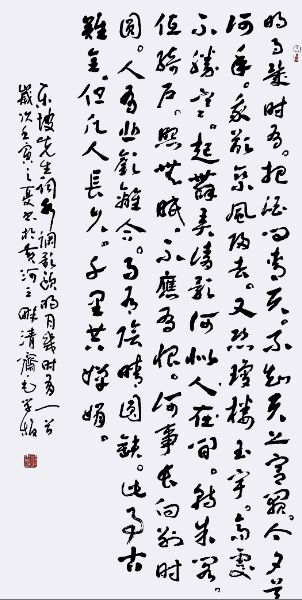 明月幾时有。把酒问青天。不知天上宫阙。今夕是
何年。我欲乘風歸去。又恐瓊楼玉宇。高處
不勝寒。起舞弄清影何似人在间。转朱阁。
低绮户。照無眠。不應有恨。何事长向别时
圆。人有悲歡離合。月有陰晴圆缺。此事古
難全。但願人長久。千里共嬋娟。
东坡先生词水调歌頭明月幾时有一首
歲次壬寅之夏书於黄河之畔清齋